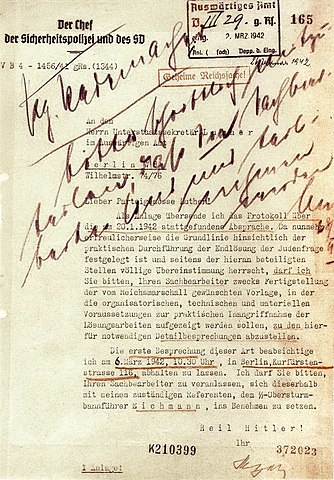 Der Chef
der Sicherheitspolizei und des SD
IV B 4 - 1456/41 gRs. (1344)
Auswärtiges Amt
D III 29. g. Rs.
165
eing. 2. MRZ. 1942
Anl. (fach) Dopp. d. Eing.
1942
Geheime Reichssache!
An den
Herrn Unterstaatssekretär
im Auswärtigen Amt
Berlin
Wilhelmstr. 74/76
Lieber Parteigenosse Luther!
Als Anlage übersende ich das Protokoll über
die 20.1.1942 stattgefundene Absprache. Da nunmehr
erfreulicherweise die Grundlinie hinsichtlich der
praktischen Durchführung der Endlösung der Judenfrage
festgelegt ist und seitens der hieran beteiligten
Stellen völlige Übereinstimmung herrscht, darf ich
Sie bitten, Ihren Sachbearbeiter zwecks Fertigstellung
der vom Reichsmarschall gewünschten Vorlage, in der
die organisatorischen, technischen und materiellen
Voraussetzungen zur praktischen Inangriffnahme der
Lösungsarbeiten aufgezeigt werden sollen, zu den hier-
für notwendigen Detailbesprechungen abzustellen.
Die erste Besprechung dieser Art beabsichtige
ich am 6. März 1942, 10.30 Uhr, in Berlin, Kurfürsten-
strasse 116, abhalten zu lassen. Ich darf Sie bitten,
Ihren Sachbearbeiter zu veranlassen, sich dieserhalb
mit meinem zuständigen Referenten, dem ᛋᛋ-Obersturm-
bannführer Eichmann, ins Benehmen zu setzen.
Heil Hitler!
Ihr
K210399
372023
1 Anlage!